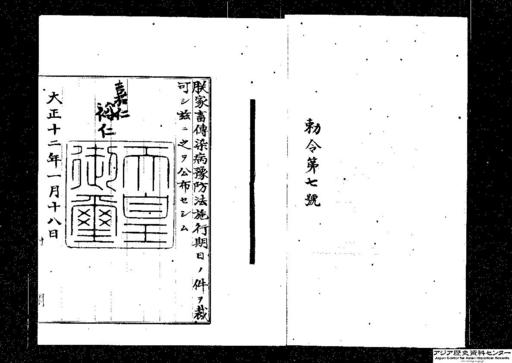 勅令第七號
朕家畜傳染病豫防法施行期日ノ件ヲ裁
可シ玆ニ之ヲ公布セシム
嘉仁
裕仁
天皇
御璽
大正十二年一月十八日
アジア歴史資料センター
Japan Center for Asian Historical Records